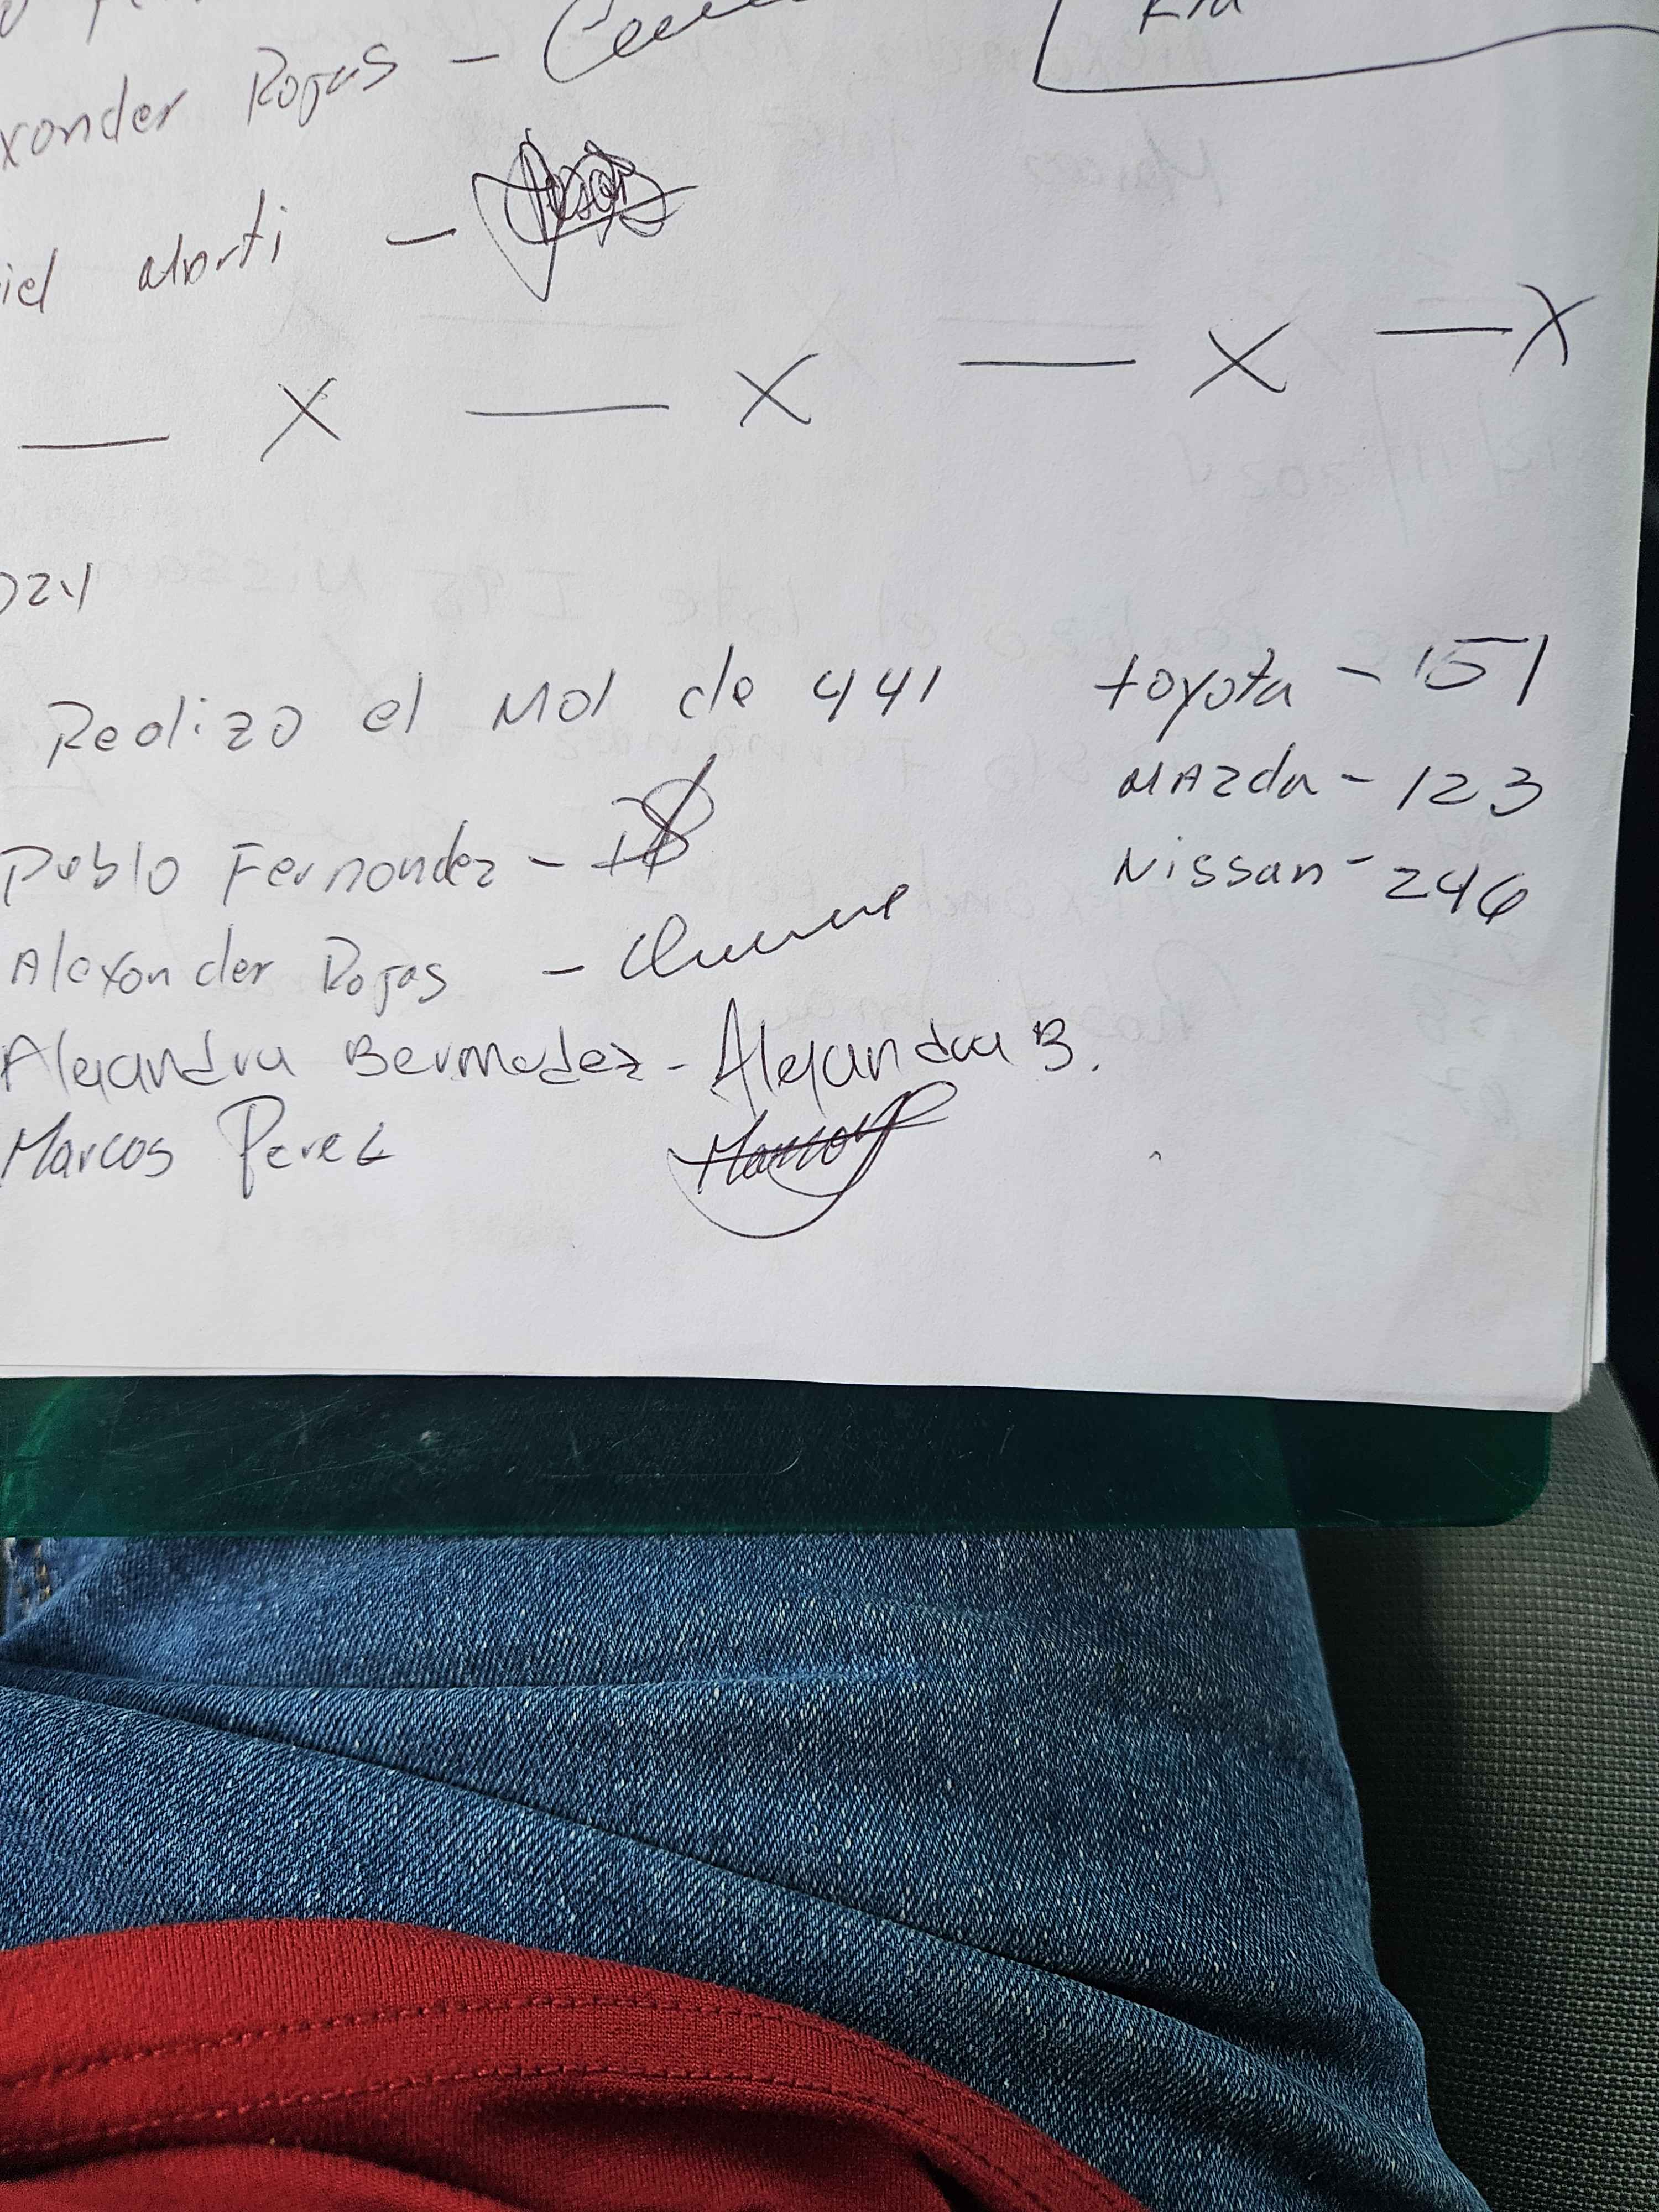 Kia
xander Rojas -
iel Marti -
— X — X — X — X
024
Realizo el Mol de 441
toyota - 151
MAzda - 123
Nissan - 246
Pablo Fernandez -
Alexander Rojas -
Alejandra Bermudez - Alejandra B.
Marcos Perez Marcos